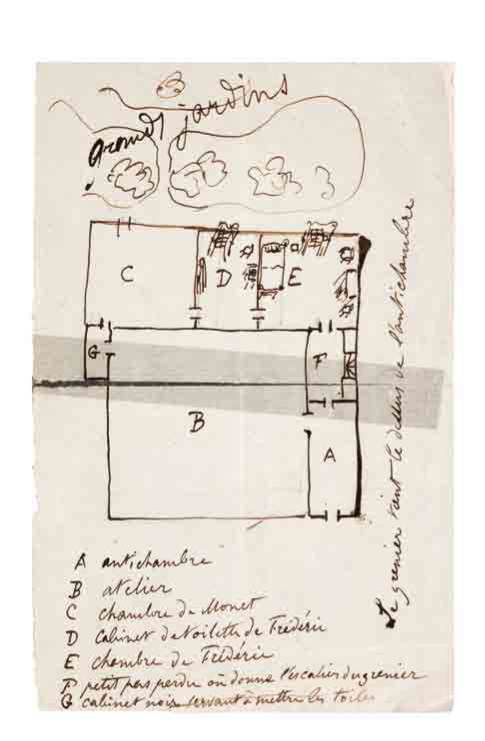 grands jardins
C
D
E
G
F
B
A
Le grenier tient le dessus de l'antichambre
A antichambre
B atelier
C chambre de Monet
D Cabinet de toilette de Frédéric
E chambre de Frédéric
F petit pas perdu où donne l'escalier du grenier
G cabinet noir servant à mettre les toiles